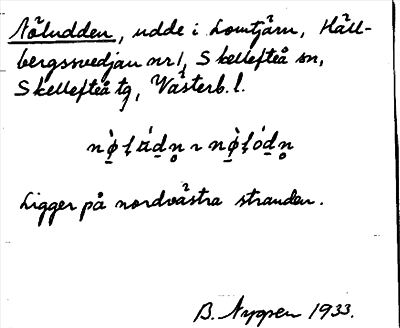 Nöludden, udde i Lomtjärn, Häll-
bergssvedjan nr 1, Skellefteå sn,
Skellefteå tg, Västerb. l.
Ligger på nordvästra stranden.
B. Nyppen 1933.